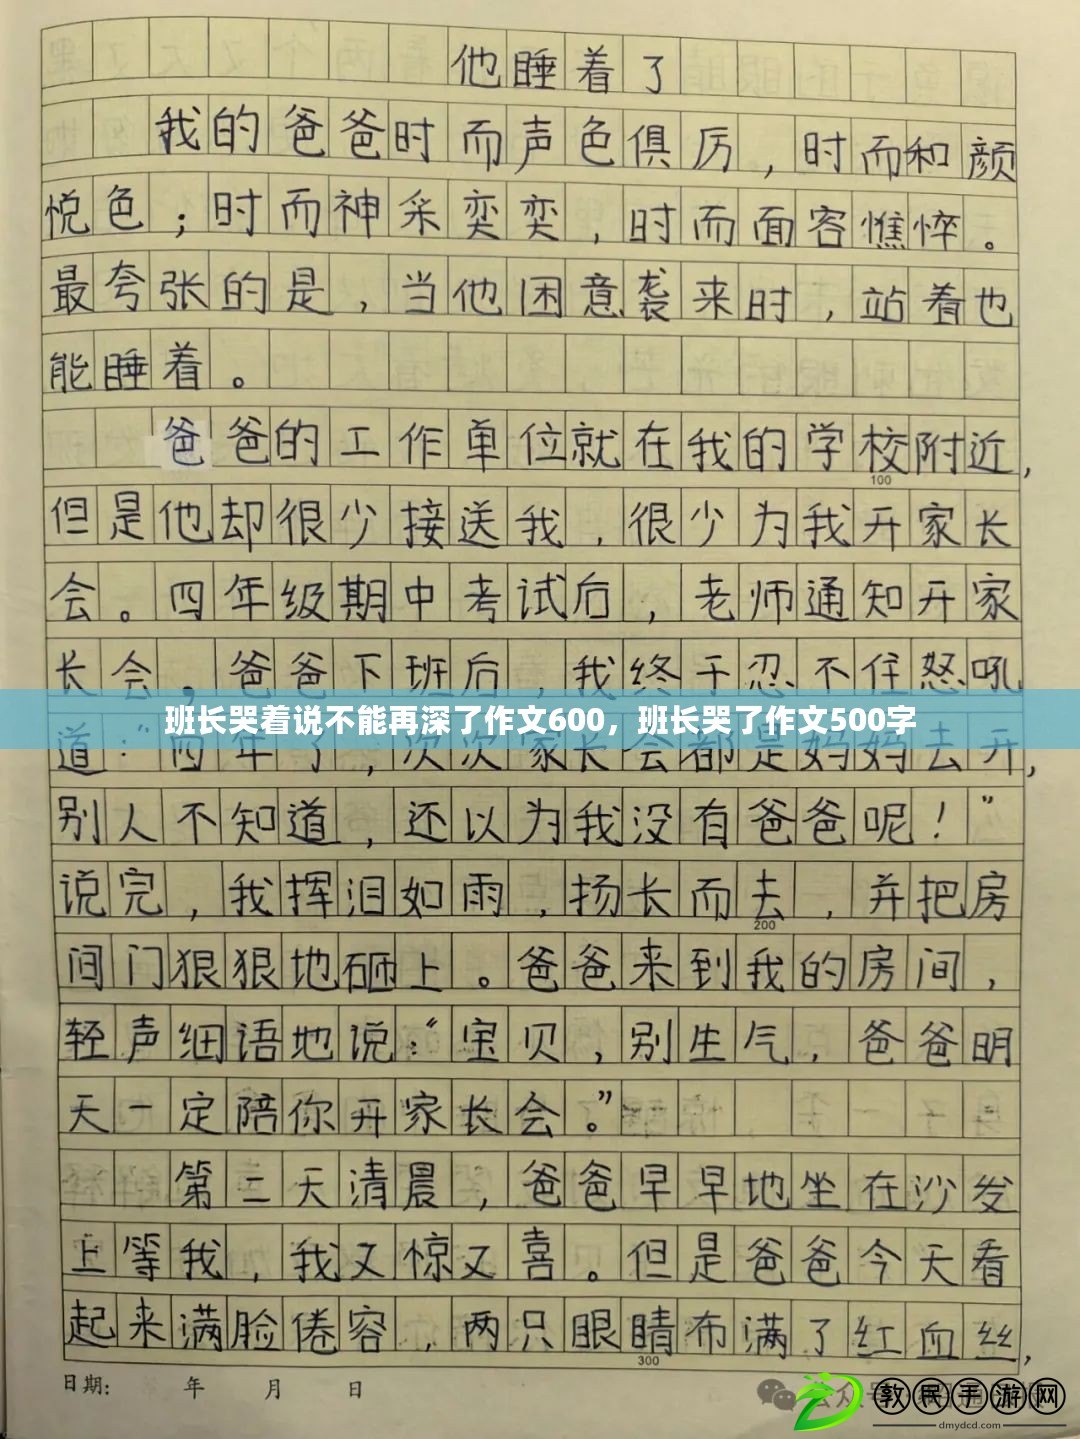 他睡着了
我的爸爸时而声色俱厉，时而和颜
悦色；时而神采奕奕，时而面容憔悴。
最夸张的是，当他困意袭来时，站着也
能睡着。
爸爸的工作单位就在我的学校附近，
100
但是他却很少接送我，很少为我开家长
会。四年级期中考试后，老师通知开家
长会，爸爸下班后，我终于忍不住怒吼
班长哭着说不能再深了作文600，班长哭了作文500字
道：“四年了，次次家长会都是妈妈去开，
别人不知道，还以为我没有爸爸呢！”
说完，我挥泪如雨，扬长而去，并把房
200
间门狠狠地砸上。爸爸来到我的房间，
轻声细语地说：“宝贝，别生气，爸爸明
天一定陪你开家长会。”
第二天清晨，爸爸早早地坐在沙发
上等我，我又惊又喜。但是爸爸今天看
起来满脸倦容，两只眼睛布满了红血丝，
300
日期： 年 月 日
公众号
教民手游网
dmydcd.com